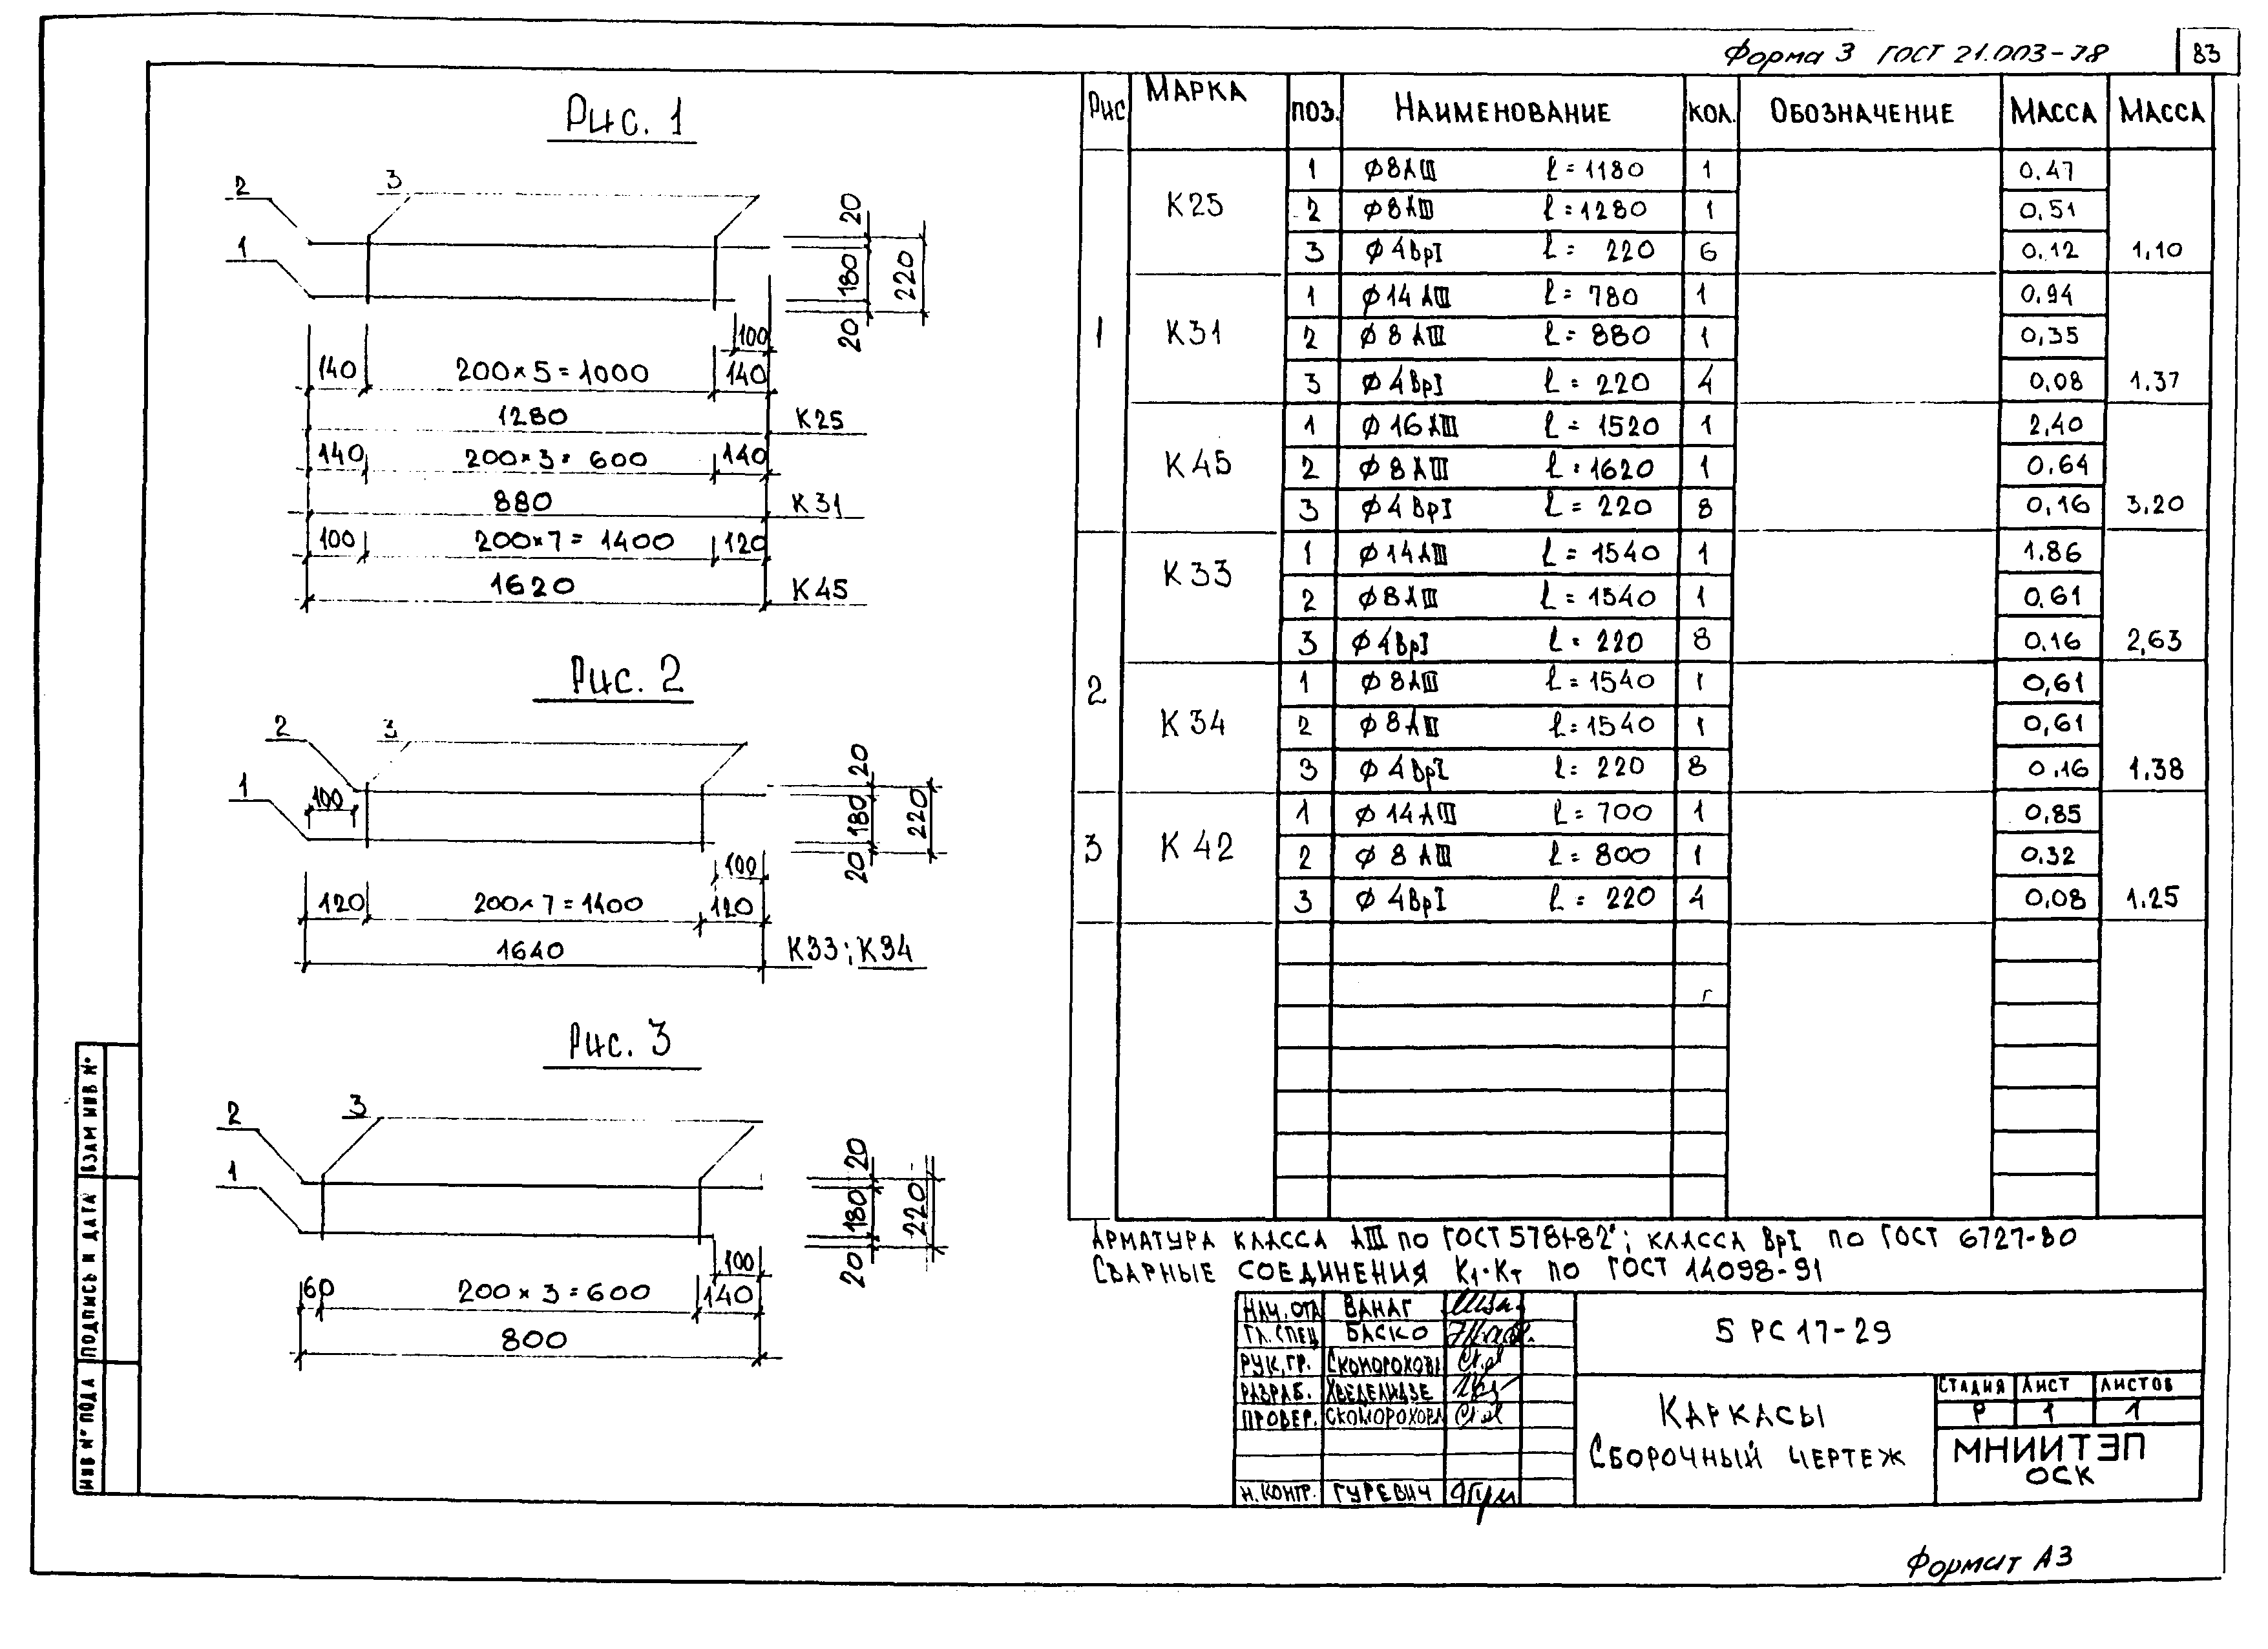 Форма 3 ГОСТ 21.003-78
83
Рис. 1
2
3
1
20
180
20
220
100
140 200×5=1000 140
1280 К25
140 200×3=600 140
880 К31
100 200×7=1400 120
1620 К45
Рис. 2
2
3
1
100
20
180
20
220
100
120 200×7=1400 120
1640 К33; К34
Рис. 3
2
3
1
20
180
20
220
100
60 200×3=600 140
800
Рис МАРКА ПОЗ. НАИМЕНОВАНИЕ КОЛ. ОБОЗНАЧЕНИЕ МАССА МАССА
1
К25
1 Ø8АIII ℓ=1180 1 0.47
2 Ø8АIII ℓ=1280 1 0,51
3 Ø4ВрI ℓ= 220 6 0.12 1,10
К31
1 Ø14АIII ℓ=780 1 0.94
2 Ø8АIII ℓ=880 1 0,35
3 Ø4ВрI ℓ=220 4 0,08 1.37
К45
1 Ø16АIII ℓ=1520 1 2,40
2 Ø8АIII ℓ=1620 1 0.64
3 Ø4ВрI ℓ=220 8 0,16 3,20
2
К33
1 Ø14АIII ℓ=1540 1 1.86
2 Ø8АIII ℓ=1540 1 0.61
3 Ø4ВрI ℓ=220 8 0.16 2,63
К34
1 Ø8АIII ℓ=1540 1 0,61
2 Ø8АIII ℓ=1540 1 0,61
3 Ø4ВрI ℓ=220 8 0.16 1,38
3
К42
1 Ø14АIII ℓ=700 1 0,85
2 Ø8АIII ℓ=800 1 0.32
3 Ø4ВрI ℓ=220 4 0,08 1.25
АРМАТУРА КЛАССА АIII ПО ГОСТ 5781-82*; КЛАССА ВрI ПО ГОСТ 6727-80
СВАРНЫЕ СОЕДИНЕНИЯ К1-Кт ПО ГОСТ 14098-91
НАЧ.ОТД ВАНАГ
ГЛ.СПЕЦ БАСКО
РУК.ГР. СКОМОРОХОВА
РАЗРАБ. ХВЕДЕЛИДЗЕ
ПРОВЕР. СКОМОРОХОВА
Н.КОНТР. ГУРЕВИЧ
5 РС 17-29
КАРКАСЫ
СБОРОЧНЫЙ ЧЕРТЕЖ
СТАДИЯ ЛИСТ ЛИСТОВ
Р 1 1
МНИИТЭП
ОСК
ВЗАМ ИНВ №
ПОДПИСЬ И ДАТА
ИНВ № ПОДЛ
Формат А3